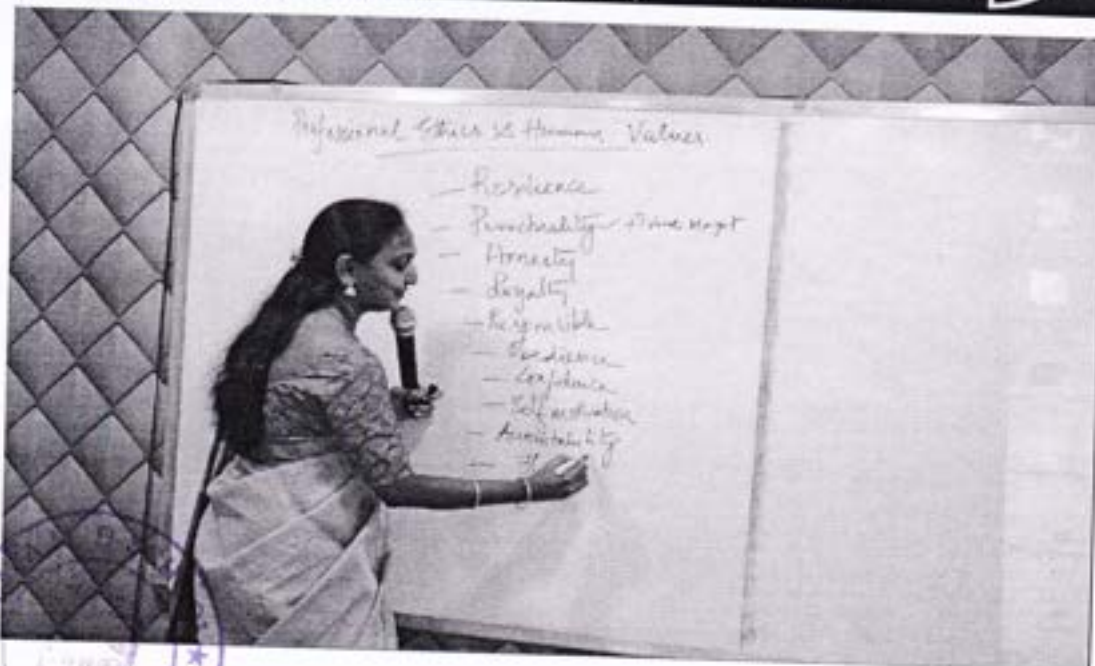 Professional Ethics & Human Values
- Resilience
- Punctuality + Time Mngt
- Honesty
- Loyalty
- Responsible
- Obedience
- Confidence
- Self motivation
- Accountability